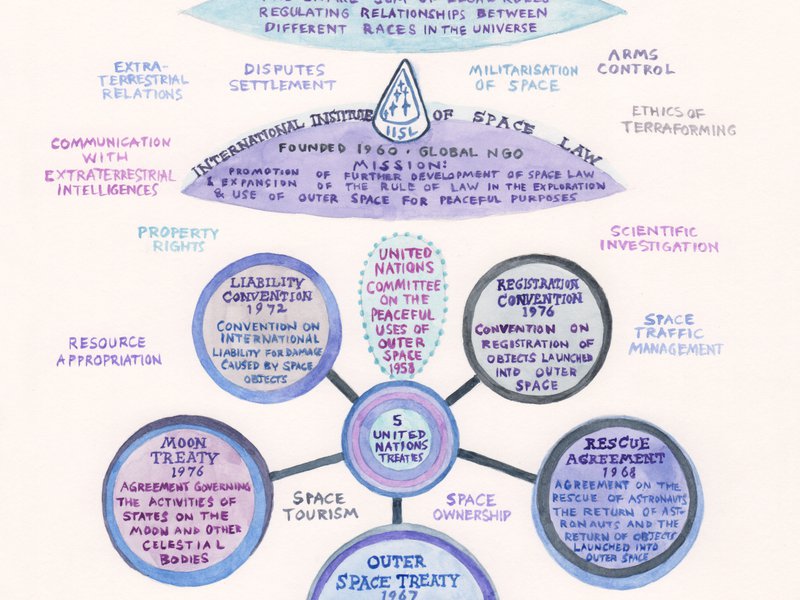 REGULATING RELATIONSHIPS BETWEEN
DIFFERENT RACES IN THE UNIVERSE
EXTRA-
TERRESTRIAL
RELATIONS
DISPUTES
SETTLEMENT
MILITARISATION
OF SPACE
ARMS
CONTROL
ETHICS OF
TERRAFORMING
IISL
INTERNATIONAL INSTITUTE OF SPACE LAW
FOUNDED 1960 · GLOBAL NGO
MISSION:
PROMOTION OF FURTHER DEVELOPMENT OF SPACE LAW
& EXPANSION OF THE RULE OF LAW IN THE EXPLORATION
& USE OF OUTER SPACE FOR PEACEFUL PURPOSES
COMMUNICATION
WITH
EXTRATERRESTRIAL
INTELLIGENCES
PROPERTY
RIGHTS
SCIENTIFIC
INVESTIGATION
UNITED
NATIONS
COMMITTEE
ON THE
PEACEFUL
USES OF
OUTER
SPACE
1958
LIABILITY
CONVENTION
1972
CONVENTION ON
INTERNATIONAL
LIABILITY FOR DAMAGE
CAUSED BY SPACE
OBJECTS
REGISTRATION
CONVENTION
1976
CONVENTION ON
REGISTRATION OF
OBJECTS LAUNCHED
INTO OUTER
SPACE
RESOURCE
APPROPRIATION
SPACE
TRAFFIC
MANAGEMENT
5
UNITED
NATIONS
TREATIES
MOON
TREATY
1976
AGREEMENT GOVERNING
THE ACTIVITIES OF
STATES ON THE
MOON AND OTHER
CELESTIAL
BODIES
RESCUE
AGREEMENT
1968
AGREEMENT ON THE
RESCUE OF ASTRONAUTS
THE RETURN OF AST-
RONAUTS AND THE
RETURN OF OBJECTS
LAUNCHED INTO
OUTER SPACE
SPACE
TOURISM
SPACE
OWNERSHIP
OUTER
SPACE TREATY
1967